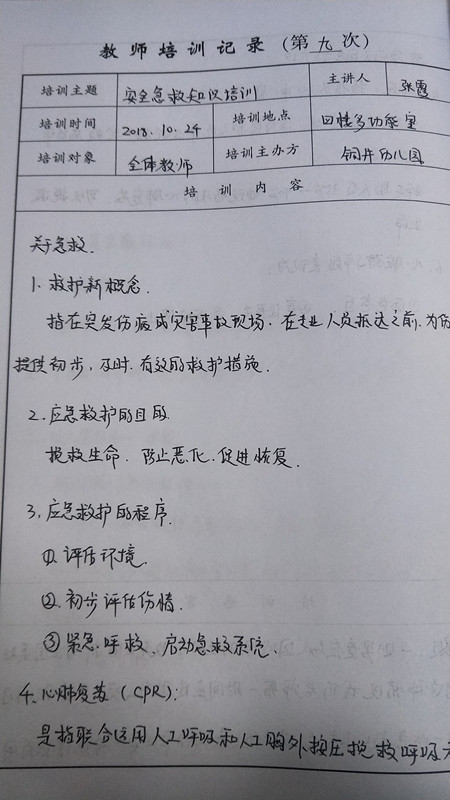 教师培训记录(第九次)
培训主题 安全急救知识培训 主讲人 张霞
培训时间 2018.10.24 培训地点 四楼多功能室
培训对象 全体教师 培训主办方 铜井幼儿园
培训内容
关于急救.
1.救护新概念.
指在突发伤病或灾害事故现场.在专业人员抵达之前.为伤
提供初步,及时.有效的救护措施.
2.应急救护的目的.
挽救生命.防止恶化.促进恢复.
3.应急救护的程序.
①.评估环境.
②.初步评估伤情.
③紧急呼救.启动急救系统.
4.心肺复苏(CPR):
是指联合运用人工呼吸和人工胸外按压挽救呼吸